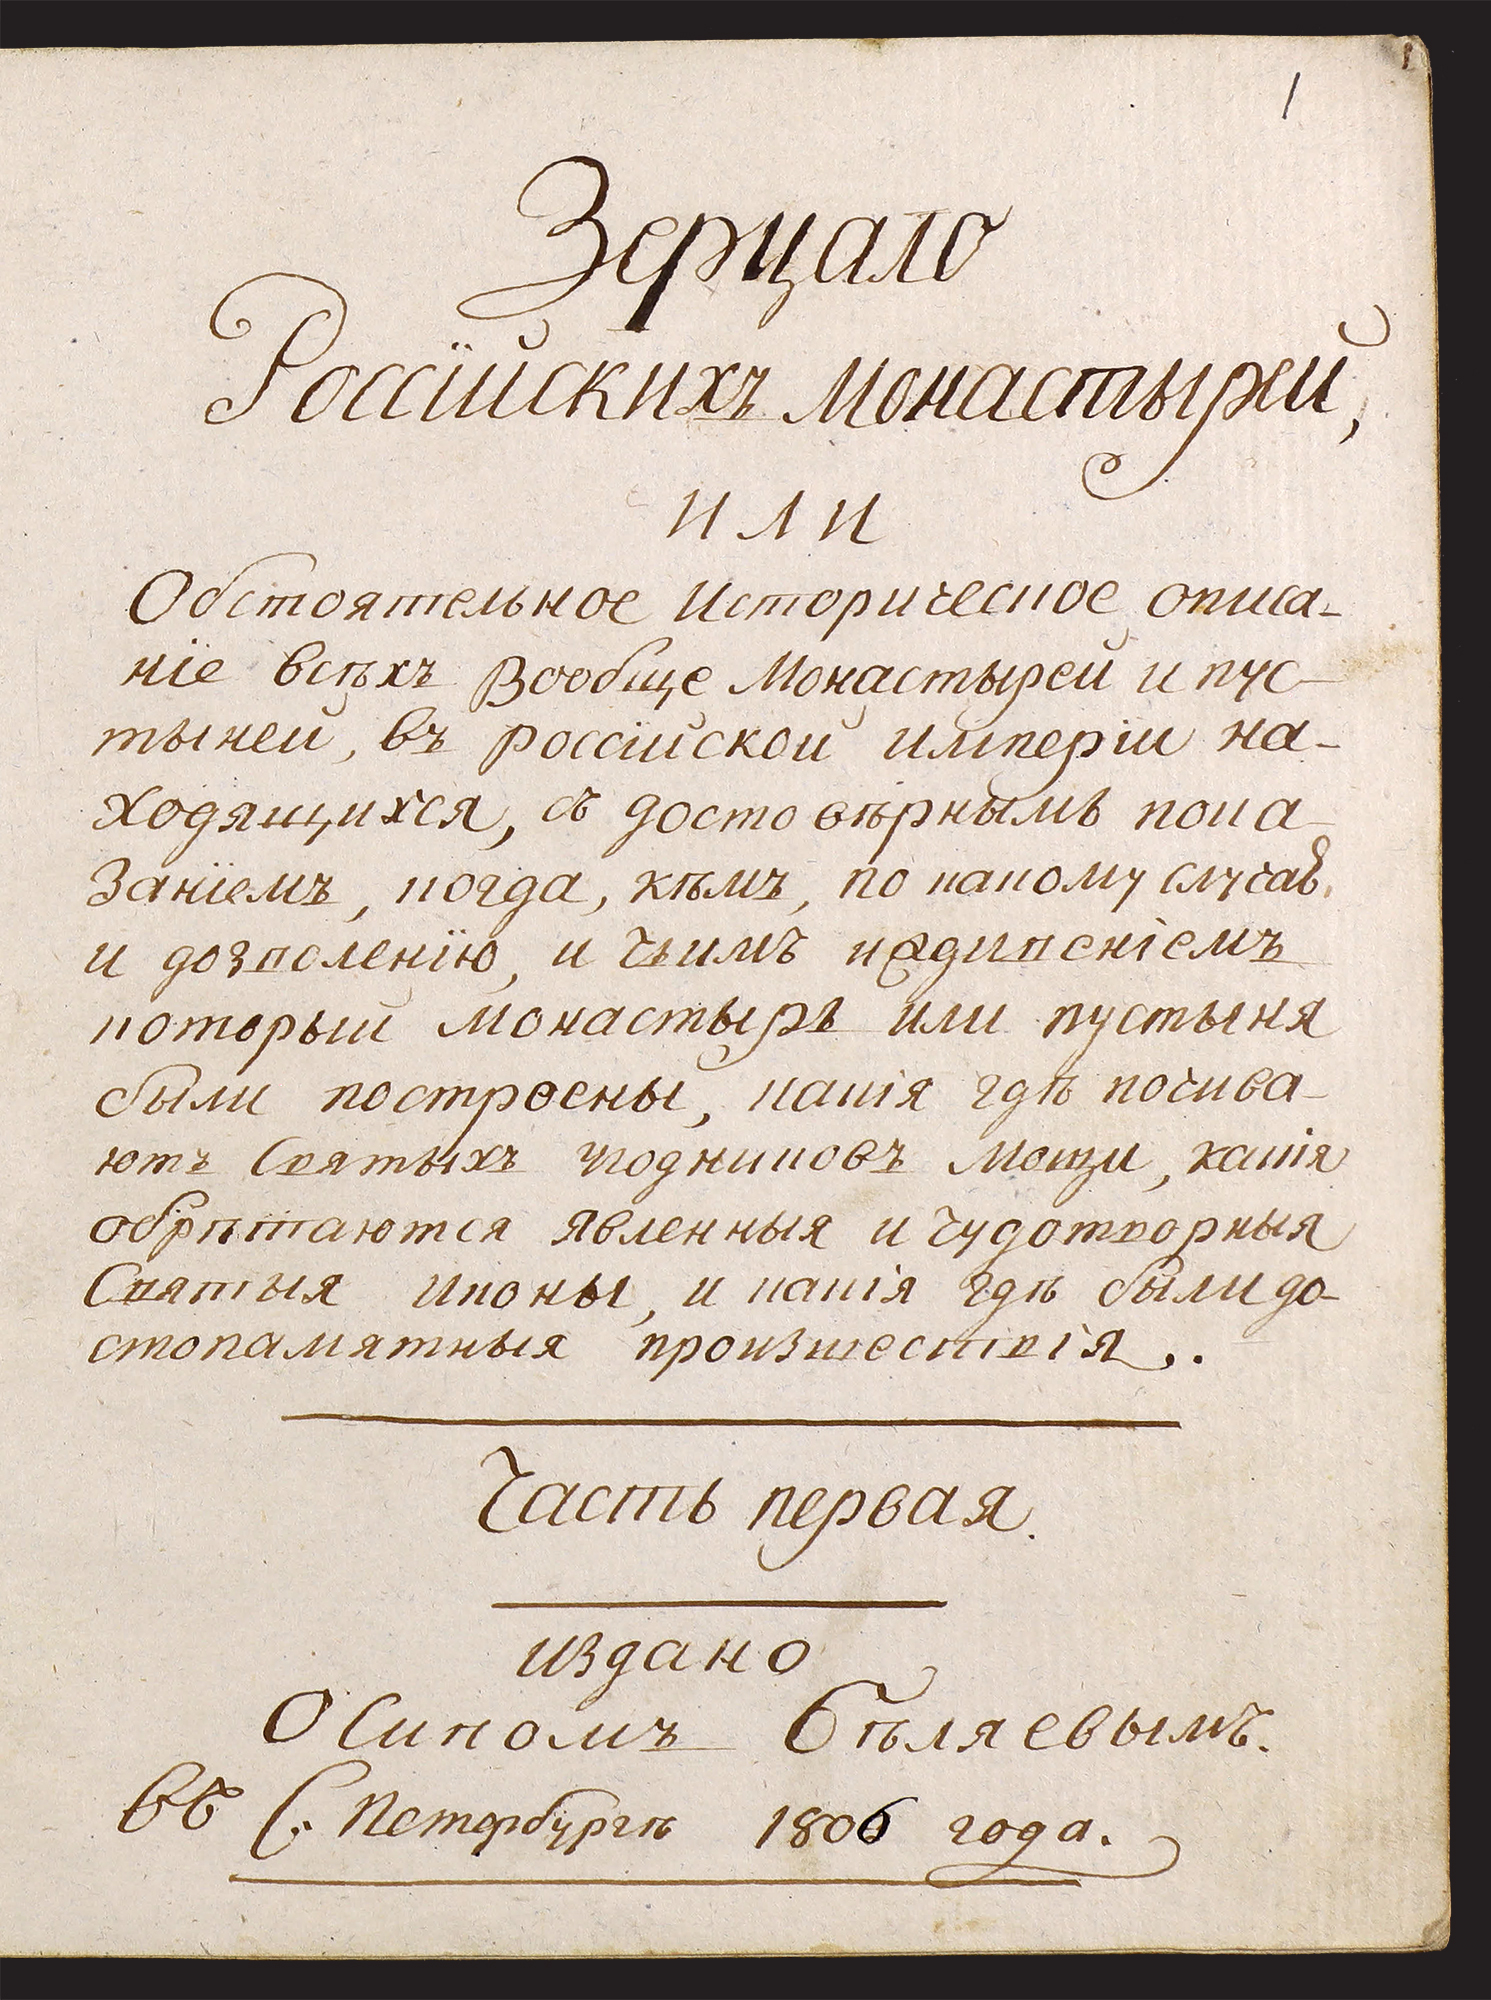 1
Зерцало
Россїйскихъ монастырей,
или
Обстоятельное Историческое описа-
нїе всѣхъ вообще монастырей и пус-
тыней, въ россїйской имперїи на-
ходящихся, съ достовѣрнымъ пока-
занїемъ, когда, кѣмъ, по какому случаю
и дозволенїю, и чьимъ иждивенїемъ
который монастырь или пустыня
были построены, какїя гдѣ почива-
ютъ Святыхъ угодниковъ мощи, какїя
обрѣтаются явленныя и чудотворныя
Святыя иконы, и какїя гдѣ были до-
стопамятныя произшествїя.
Часть первая.
издано
Осипомъ Бѣляевымъ.
въ С. Петербургѣ 1806 года.